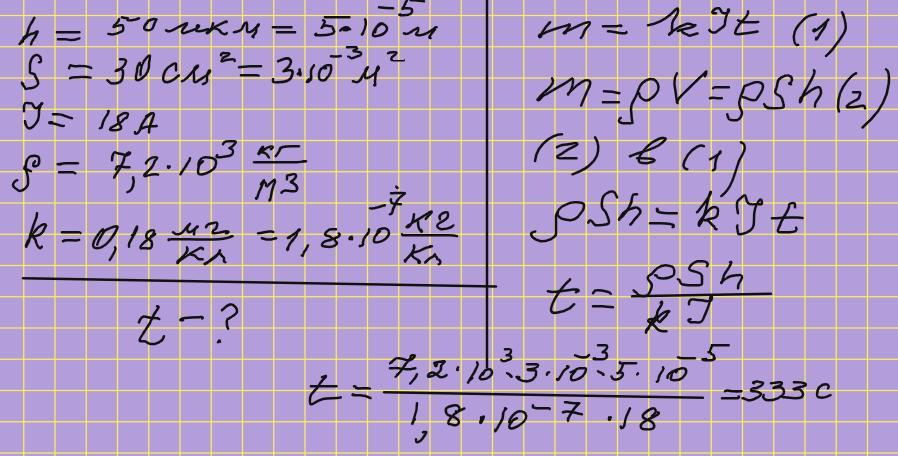 h = 50 мкм = 5·10⁻⁵ м
S = 30 см² = 3·10⁻³ м²
J = 18 A
ρ = 7,2·10³ кг/м3
k = 0,18 мг/Кл = 1,8·10⁻⁷ кг/Кл
t - ?
m = kJt (1)
m = ρV = ρSh (2)
(2) в (1)
ρSh = kJt
t = ρSh/kJ
t = 7,2·10³·3·10⁻³·5·10⁻⁵/1,8·10⁻⁷·18 = 333 c